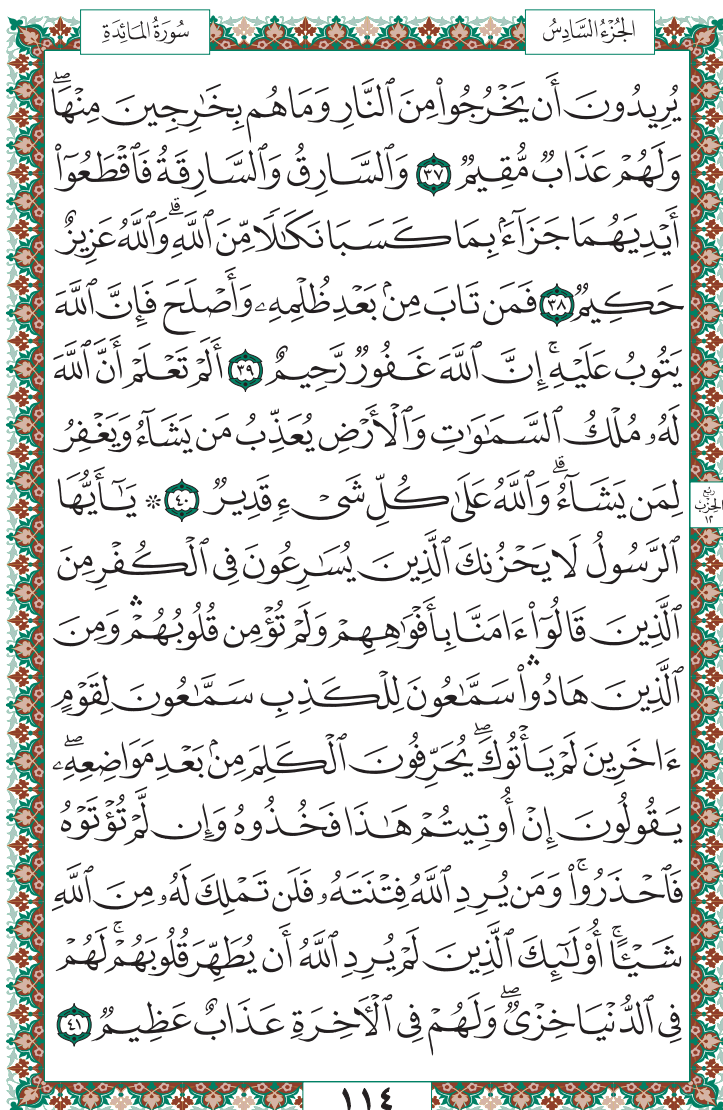 الجُزْءُ السَّادِسُ
سُورَةُ المَائِدَةِ
يُرِيدُونَ أَن يَخْرُجُوا۟ مِنَ ٱلنَّارِ وَمَا هُم بِخَـٰرِجِينَ مِنْهَاۖ
وَلَهُمْ عَذَابٌ مُّقِيمٌ ٣٧ وَٱلسَّارِقُ وَٱلسَّارِقَةُ فَٱقْطَعُوٓا۟
أَيْدِيَهُمَا جَزَآءَۢ بِمَا كَسَبَا نَكَـٰلًا مِّنَ ٱللَّهِۗ وَٱللَّهُ عَزِيزٌ
حَكِيمٌ ٣٨ فَمَن تَابَ مِنۢ بَعْدِ ظُلْمِهِۦ وَأَصْلَحَ فَإِنَّ ٱللَّهَ
يَتُوبُ عَلَيْهِۚ إِنَّ ٱللَّهَ غَفُورٌ رَّحِيمٌ ٣٩ أَلَمْ تَعْلَمْ أَنَّ ٱللَّهَ
لَهُۥ مُلْكُ ٱلسَّمَـٰوَٰتِ وَٱلْأَرْضِ يُعَذِّبُ مَن يَشَآءُ وَيَغْفِرُ
لِمَن يَشَآءُۗ وَٱللَّهُ عَلَىٰ كُلِّ شَىْءٍ قَدِيرٌ ٤٠ ۞ يَـٰٓأَيُّهَا
ربع الحزب ١٢
ٱلرَّسُولُ لَا يَحْزُنكَ ٱلَّذِينَ يُسَـٰرِعُونَ فِى ٱلْكُفْرِ مِنَ
ٱلَّذِينَ قَالُوٓا۟ ءَامَنَّا بِأَفْوَٰهِهِمْ وَلَمْ تُؤْمِن قُلُوبُهُمْۛ وَمِنَ
ٱلَّذِينَ هَادُوا۟ۛ سَمَّـٰعُونَ لِلْكَذِبِ سَمَّـٰعُونَ لِقَوْمٍ
ءَاخَرِينَ لَمْ يَأْتُوكَۖ يُحَرِّفُونَ ٱلْكَلِمَ مِنۢ بَعْدِ مَوَاضِعِهِۦۖ
يَقُولُونَ إِنْ أُوتِيتُمْ هَـٰذَا فَخُذُوهُ وَإِن لَّمْ تُؤْتَوْهُ
فَٱحْذَرُوا۟ۚ وَمَن يُرِدِ ٱللَّهُ فِتْنَتَهُۥ فَلَن تَمْلِكَ لَهُۥ مِنَ ٱللَّهِ
شَيْـًٔاۚ أُو۟لَـٰٓئِكَ ٱلَّذِينَ لَمْ يُرِدِ ٱللَّهُ أَن يُطَهِّرَ قُلُوبَهُمْۚ لَهُمْ
فِى ٱلدُّنْيَا خِزْىٌۖ وَلَهُمْ فِى ٱلْـَٔاخِرَةِ عَذَابٌ عَظِيمٌ ٤١
١١٤